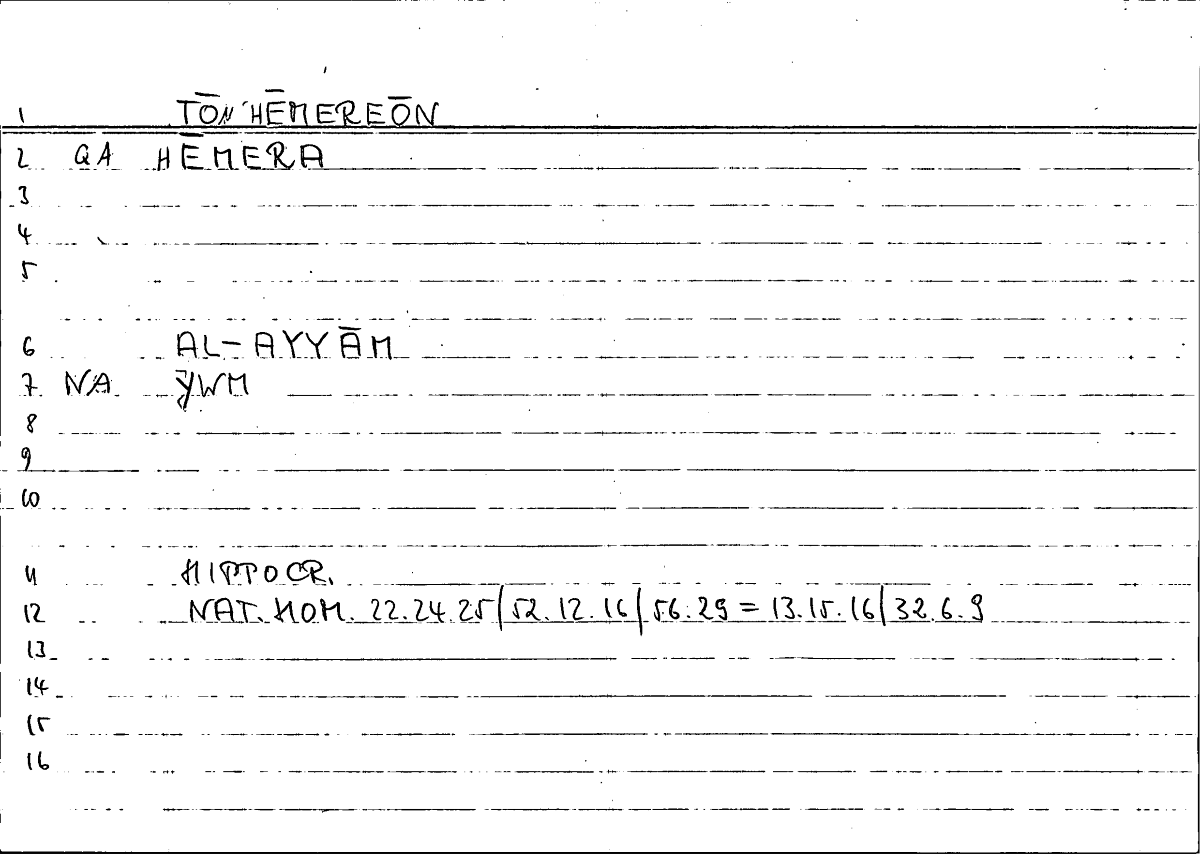 1 TŌN HĒMEREŌN
2 QA HĒMERA
3
4
5
6 AL-AYYĀM
7 NA YWM
8
9
10
11 HIPPOCR.
12 NAT. HOM. 22.24.25/52.12.16/56.29 = 13.15.16/32.6.9
13
14
15
16